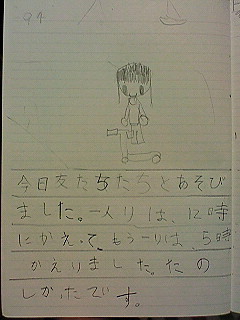 今日友だちたちとあそび
ました。一人りは、12時
にかえって、もう一りは、5時
かえりました。たの
しかったです。